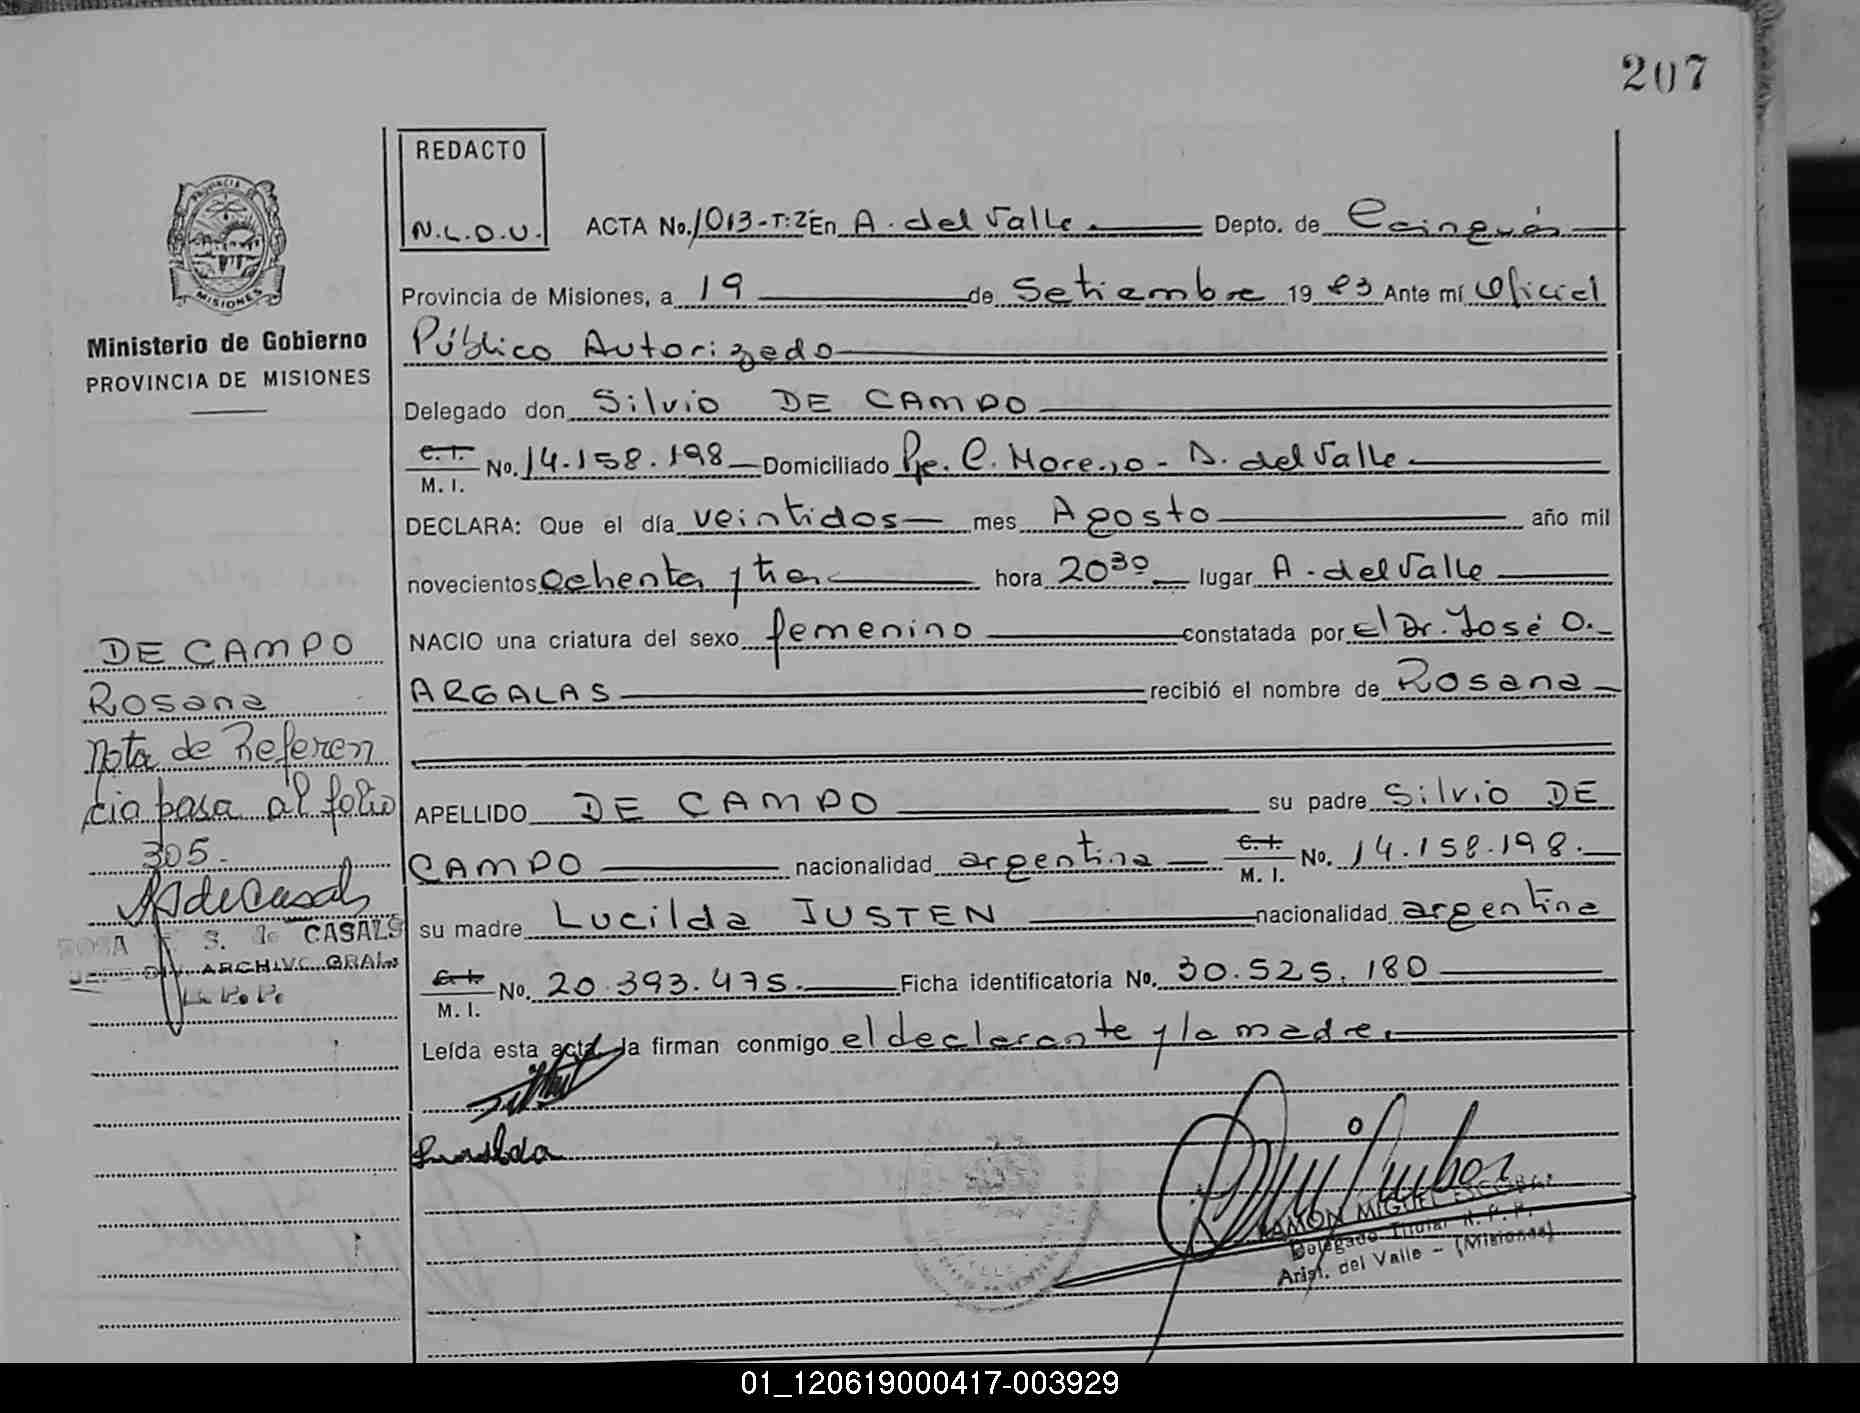 207
REDACTO
N.L.D.U.
ACTA No. 1013-T:2º En A. del Valle Depto. de Cainguás
Provincia de Misiones, a 19 de Setiembre 19 83 Ante mí Oficial
Público Autorizado
Delegado don Silvio DE CAMPO
C.I. M. I. No. 14.158.198 Domiciliado Pje. C. Moreno - A. del Valle
DECLARA: Que el día veintidos mes Agosto año mil
novecientos ochenta y tres hora 20 30 lugar A. del Valle
NACIO una criatura del sexo femenino constatada por el Dr. José O.
ARGALAS recibió el nombre de Rosana
APELLIDO DE CAMPO su padre Silvio DE
CAMPO nacionalidad argentina C.I. M. I. No. 14.158.198.
su madre Lucilda JUSTEN nacionalidad argentina
C.I. M. I. No. 20.393.475. Ficha identificatoria No. 30.525.180
Leída esta acta la firman conmigo el declarante y la madre.
RAMON MIGUEL ESCOBAR
Delegado Titular R. P. P.
Arist. del Valle - (Misiones)
PROVINCIA DE
MISIONES
Ministerio de Gobierno
PROVINCIA DE MISIONES
DE CAMPO
Rosana
Nota de Referen
cia pasa al folio
305.
ROSA S. de CASALS
ARCHIVO GRAL.
01_120619000417-003929